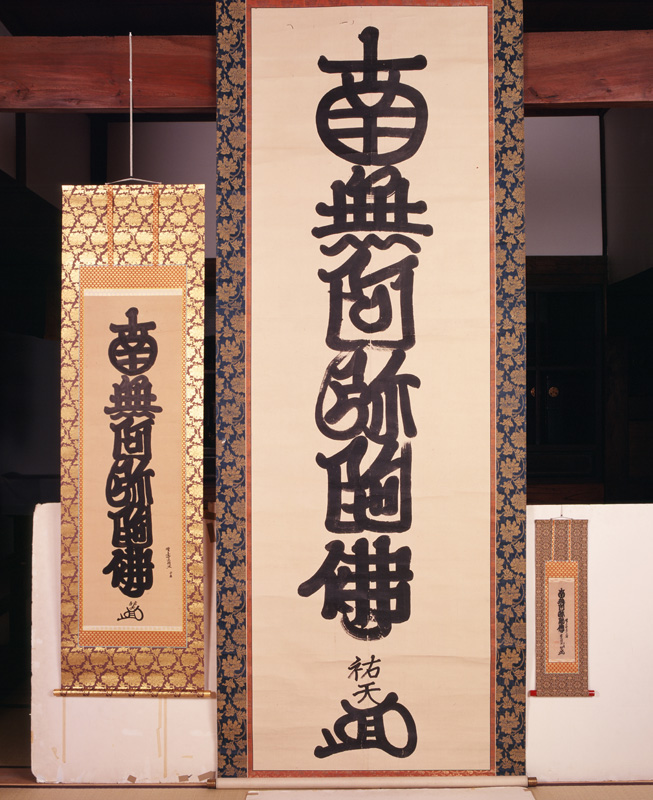 南無阿弥陀佛
南無阿弥陀佛
祐天
南無阿弥陀佛